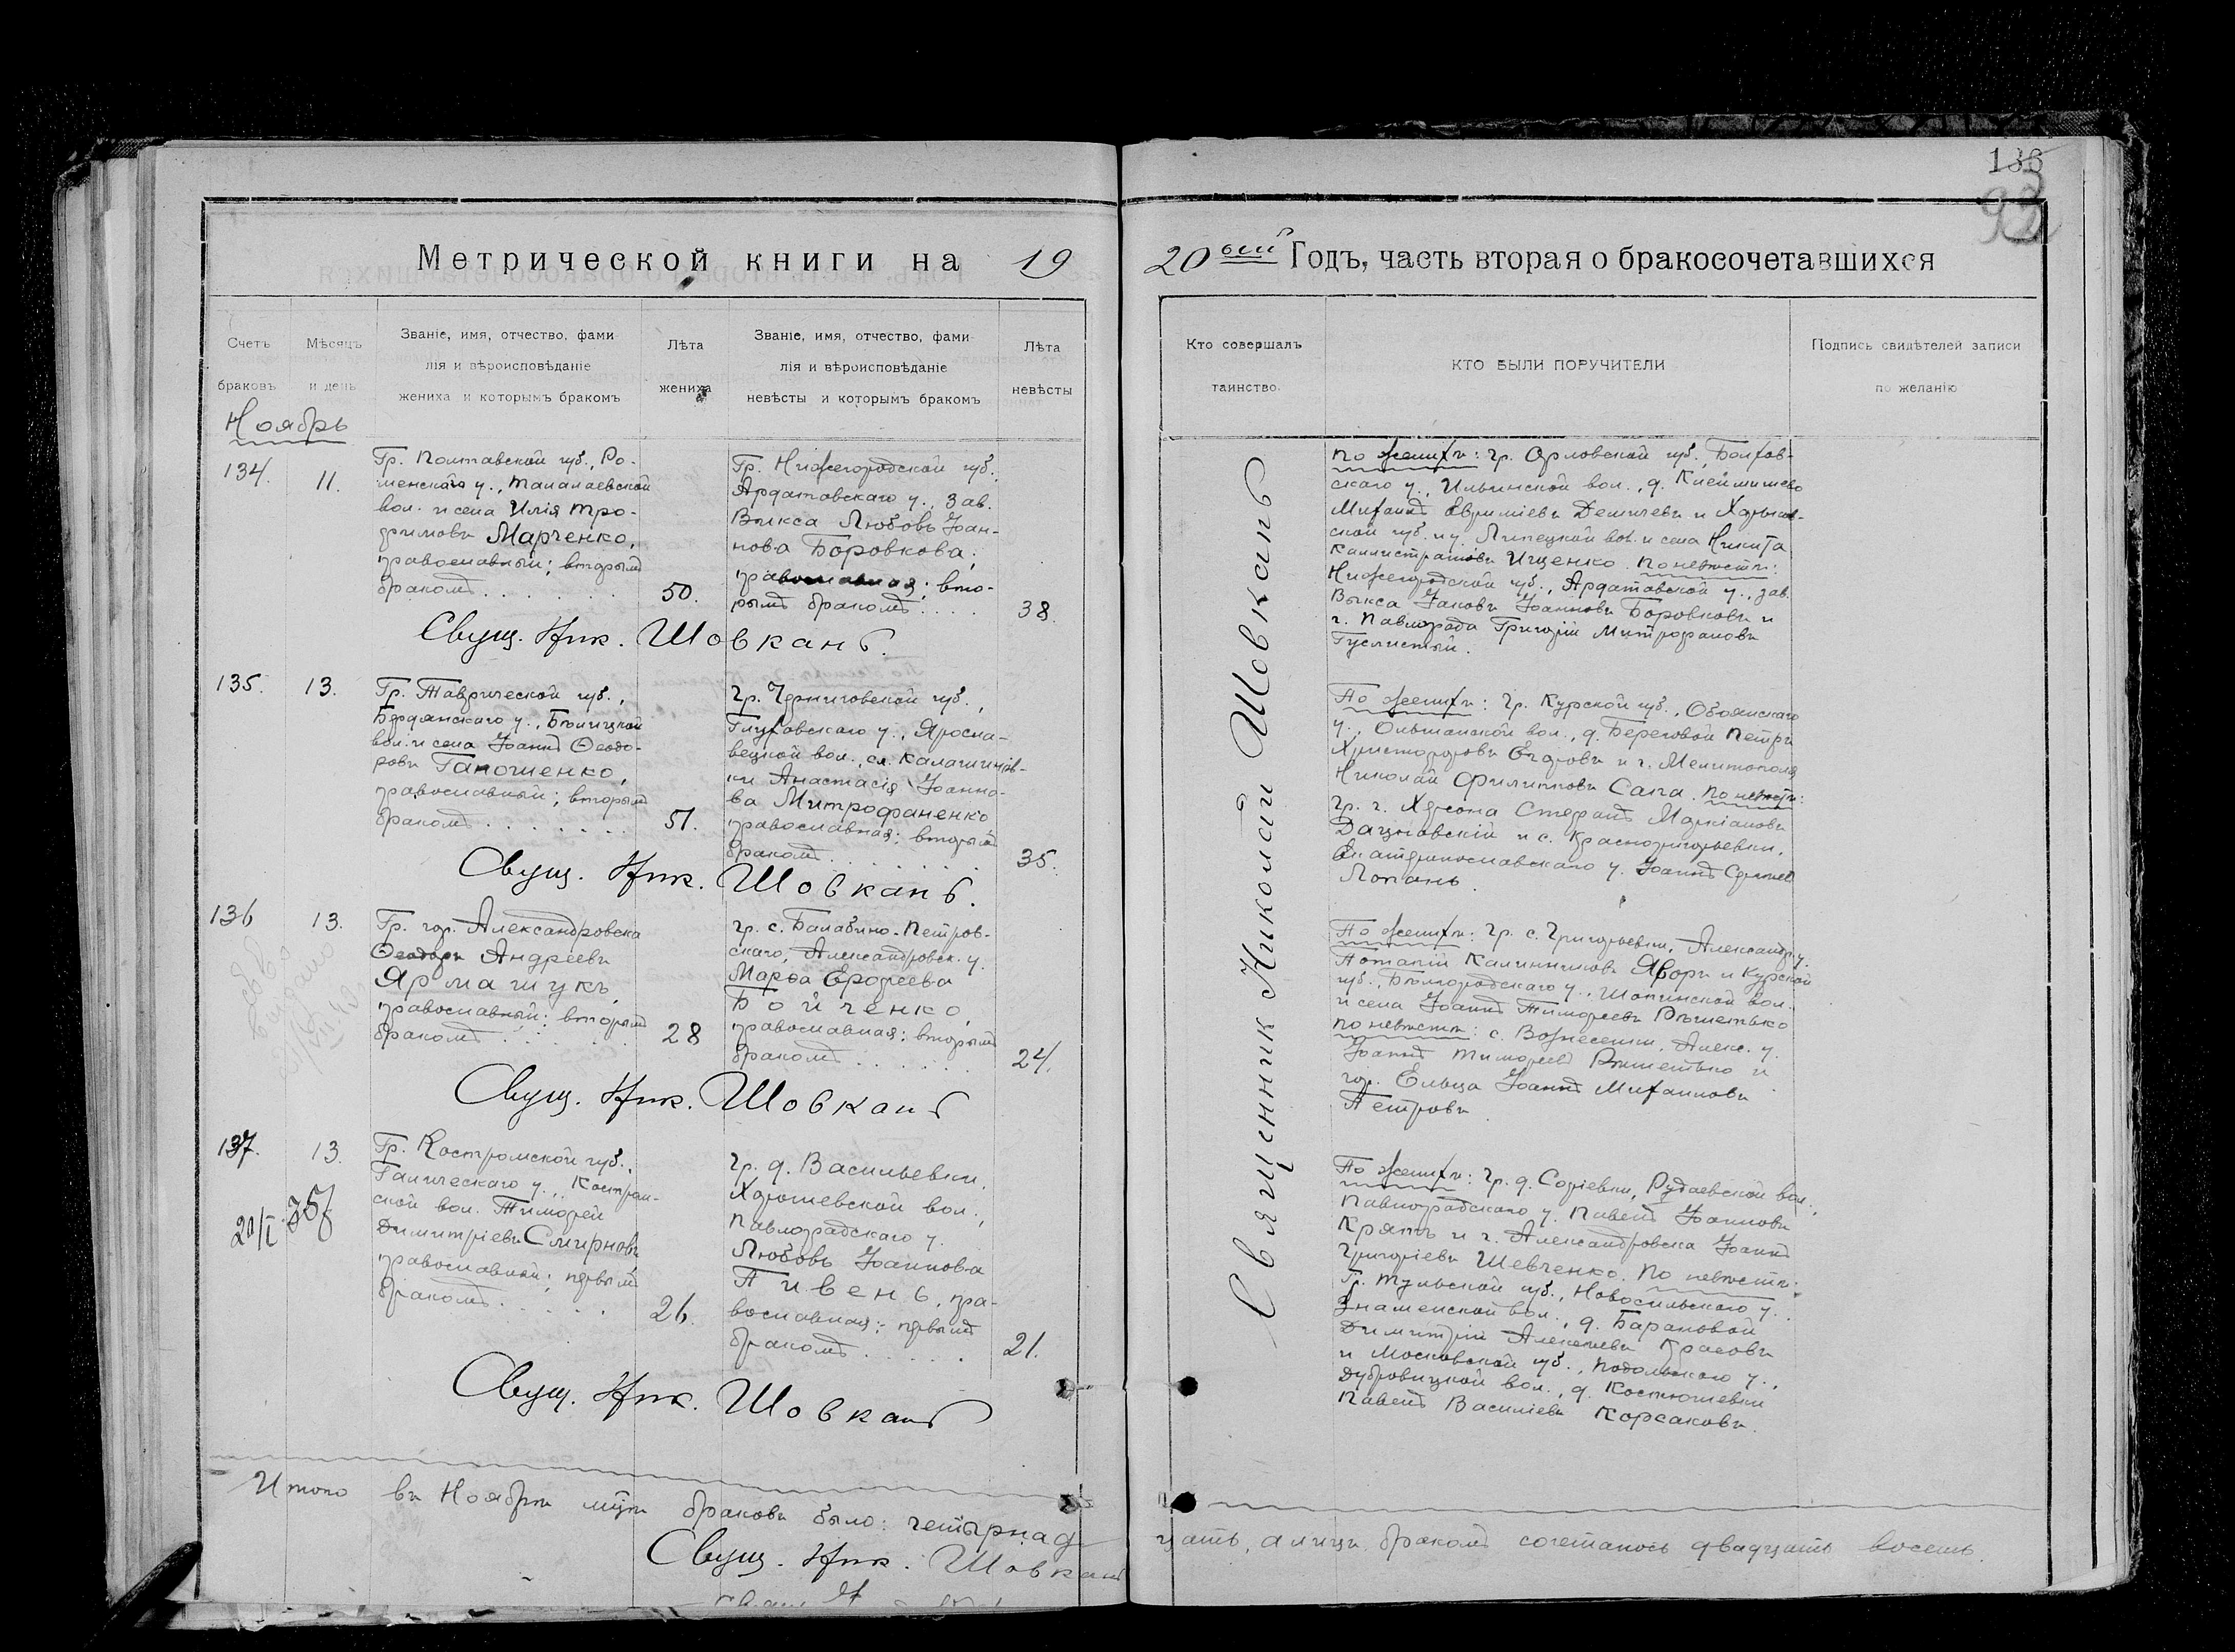 136
92
Метрической книги на 19
20ый Годъ, часть вторая о бракосочетавшихся
Счетъ
браковъ
Мѣсяцъ
и день
Званіе, имя, отчество, фами
лія и вѣроисповѣданіе
жениха и которымъ бракомъ
Лѣта
жениха
Званіе, имя, отчество, фами
лія и вѣроисповѣданіе
невѣсты и которымъ бракомъ
Лѣта
невѣсты
Кто совершалъ
таинство.
КТО БЫЛИ ПОРУЧИТЕЛИ
Подпись свидѣтелей записи
по желанію
Ноябрь
134.
11.
Гр. Полтавской губ., Ро-
менскаго у., Талалаевской
вол. и села Илія Тро-
фимовъ Марченко,
православный; вторымъ
бракомъ
50.
Гр. Нижегородской губ.,
Ардатовскаго у., зав.
Выкса Любовь Іоан-
нова Боровкова;
православная; вто-
рымъ бракомъ
38.
Свящ. Ник. Шовкань.
135.
13.
Гр. Таврической губ.,
Бердянскаго у.,
вол. и села Іоаннъ Ѳеодо-
ровъ Гапошенко,
православный; вторымъ
бракомъ
51.
Гр. Черниговской губ.,
Глуховскаго у., Яросла-
вецкой вол., сл. Калашнов-
ки Анастасія Іоанно-
ва Митрофаненко
православная; вторымъ
бракомъ
35.
Свящ. Ник. Шовкань.
136
13.
Гр. гор. Александровска
Ѳеодоръ Андреевъ
Ярмащукъ,
православный; вторымъ
бракомъ
28
гр. с. Балабино-Петров-
скаго, Александровск. у.
Марѳа Ерофеева
Бойченко,
православная; вторымъ
бракомъ
24.
Свящ. Ник. Шовкань
137.
13.
20/I
Гр. Костромской губ.,
Галическаго у., Костром-
ской вол. Тимофей
Димитріевъ Смирновъ
православный; первымъ
бракомъ
26.
гр. д. Васильевки,
Хорошевской вол.,
Павлоградскаго у.
Любовь Іоаннова
Пивень, пра-
вославная; первымъ
бракомъ
21.
Свящ. Ник. Шовкань
Священник Николай Шовкань
По женихѣ: гр. Орловской губ., Болхов-
скаго у., Ильинской вол., д. Клейменово
Михаилъ Евфиміевъ Деничевъ и Харьков-
ской губ. и у. Липецкой вол. и села Никита
Каллистратовъ Ищенко. По невѣстѣ:
Нижегородской губ., Ардатовской у., зав.
Выкса Іаковъ Іоанновъ Боровковъ и
г. Павлограда Григорій Митрофановъ
Гуслистый.
По женихѣ: гр. Курской губ., Обоянскаго
у., Ольшанской вол., д. Береговой Петръ
Христофоровъ Егоровъ и г. Мелитополя
Николай Филипповъ Сапа. По невѣстѣ:
гр. г. Херсона Стефанъ Маркіановъ
Дацновскій и с. Красногригорьевки,
Екатеринославскаго у. Іоаннъ Сергіевъ
Лопань.
По женихѣ: гр. с. Григорьевки, Александр. у.
Потапій Калинниковъ Яворъ и Курской
губ., Белгородскаго у., Шопинской вол.
и села Іоаннъ Тимофеевъ Рѣшетько
По невѣстѣ: с. Вознесенки, Алекс. у.
Іоаннъ Тимофеевъ Рѣшетько и
гор. Ельца Іоаннъ Михаиловъ
Петровъ.
По женихѣ: гр. д. Софіевки, Рудаевской вол.,
Павлоградскаго у. Павелъ Іоанновъ
Крятъ и г. Александровска Іоаннъ
Григоріевъ Шевченко. По невѣстѣ:
Гр. Тульской губ., Новосильскаго у.
Знаменской вол., д. Барановой
Димитрій Алексѣевъ Красовъ
и Московской губ., Подольскаго у.,
Дубровицкой вол., д. Костюшевки
Павелъ Василіевъ Корсаковъ.
Итого въ Ноябрѣ м-цѣ браковъ было: четырнад-
цать, а лицъ бракомъ сочеталось двадцать восемь.
Свящ. Ник. Шовкань